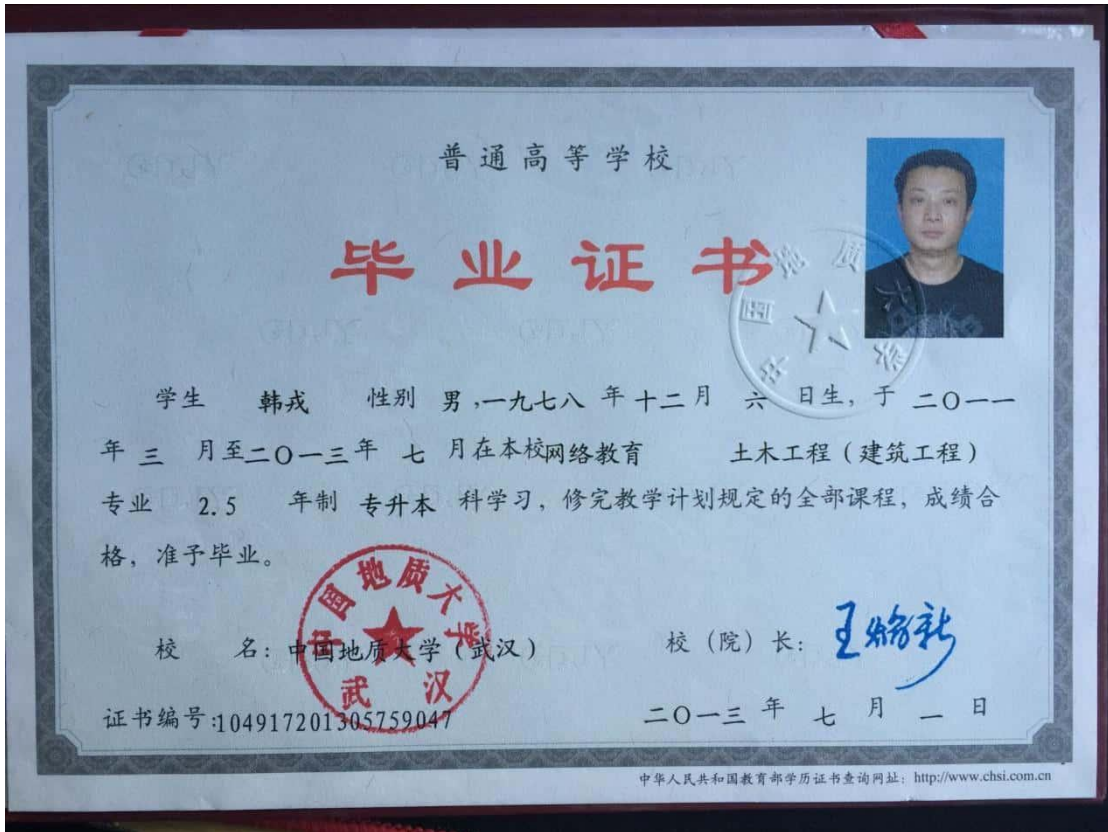 普通高等学校
毕业证书
中国地质大学
学生 韩戎 性别 男，一九七八 年 十二 月 六 日生，于 二〇一一
年 三 月至二〇一三年 七 月在本校网络教育 土木工程（建筑工程）
专业 2.5 年制 专升本 科学习，修完教学计划规定的全部课程，成绩合
格，准予毕业。
中国地质大学
武汉
校 名：中国地质大学（武汉） 校（院）长：
证书编号:104917201305759047 二〇一三 年 七 月 一 日
中华人民共和国教育部学历证书查询网址：http://www.chsi.com.cn